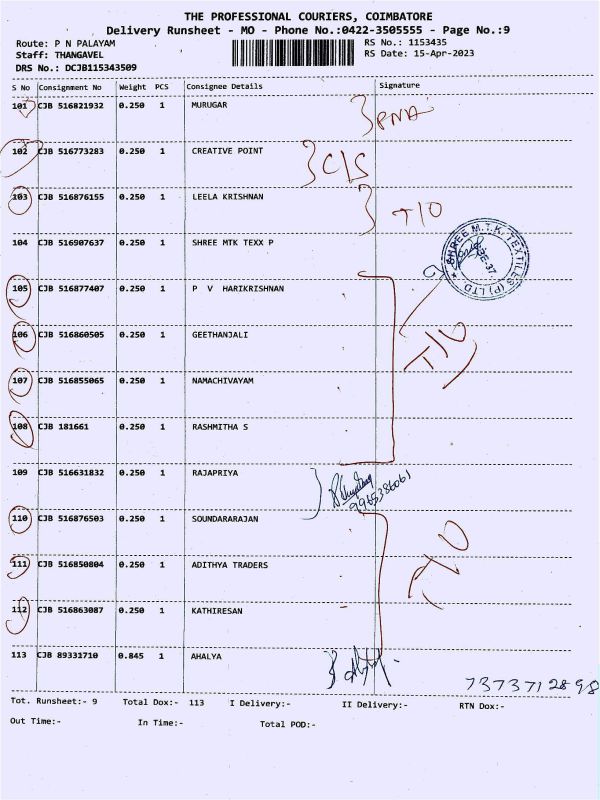 THE PROFESSIONAL COURIERS, COIMBATORE
Delivery Runsheet - MO - Phone No.:0422-3505555 - Page No.:9
Route: P N PALAYAM RS No.: 1153435
Staff: THANGAVEL RS Date: 15-Apr-2023
DRS No.: DCJB115343509
S No Consignment No Weight PCS Consignee Details Signature
101 CJB 516821932 0.250 1 MURUGAR
102 CJB 516773283 0.250 1 CREATIVE POINT C/S
103 CJB 516876155 0.250 1 LEELA KRISHNAN T/O
104 CJB 516907637 0.250 1 SHREE MTK TEXX P
SHREE M.T.K. TEXTILES (P) LTD
105 CJB 516877407 0.250 1 P V HARIKRISHNAN
106 CJB 516860505 0.250 1 GEETHANJALI T/O
107 CJB 516855065 0.250 1 NAMACHIVAYAM
108 CJB 181661 0.250 1 RASHMITHA S
109 CJB 516631832 0.250 1 RAJAPRIYA
110 CJB 516876503 0.250 1 SOUNDARARAJAN
111 CJB 516850804 0.250 1 ADITHYA TRADERS T/O
112 CJB 516863087 0.250 1 KATHIRESAN
113 CJB 89331710 0.845 1 AHALYA
7373712898
Tot. Runsheet:- 9 Total Dox:- 113 I Delivery:- II Delivery:- RTN Dox:-
Out Time:- In Time:- Total POD:-